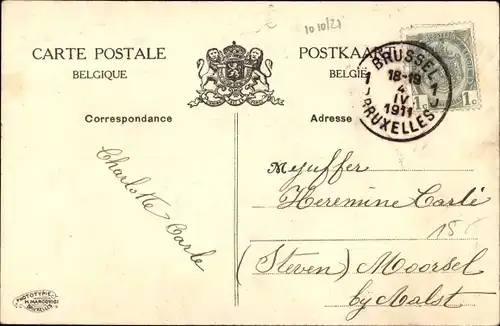 10 10/27
CARTE POSTALE
BELGIQUE
POSTKAART
BELGIË
BRUSSEL 1
18-19
4
IV
1911
BRUXELLES
1c 1c
Correspondance
Adresse
Charlotte Carlé
Mejuffer
Heremine Carlé
15
(Steven) Moorsel
bij Aalst
PHOTOTYPIE
H. MARCOVICI
BRUXELLES